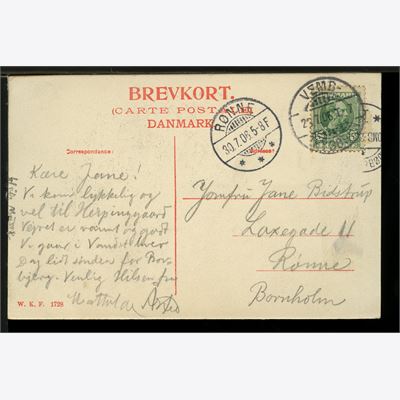 BREVKORT.
(CARTE POSTALE)
DANMARK.
Correspondance:
Adresse:
RØNNE
30.7.06.5-8.F
VEMB-
Kære Jane!
Vi kom lykkelig og
vel til Herpinggaard
Vejret er varmt og godt
Vi gaar i Vandet hver
Dag lidt sønden for
bjerg. Venlig Hilsen fra
Jomfru Jane Bidstrup
Laxegade 11
Rønne
Bornholm
W. K. F. 1728